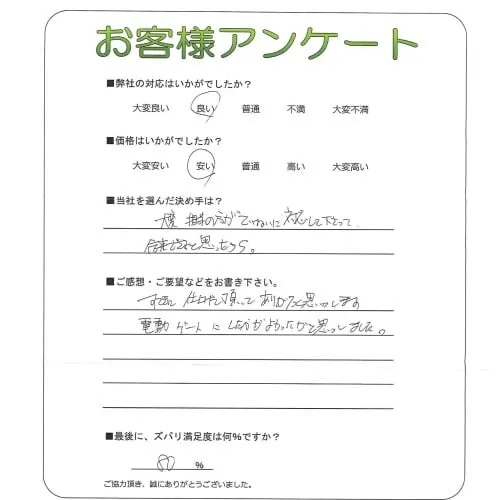 お客様アンケート
■弊社の対応はいかがでしたか？
大変良い 良い 普通 不満 大変不満
■価格はいかがでしたか？
大変安い 安い 普通 高い 大変高い
■当社を選んだ決め手は？
ていねいに対応して下さって
と思ったから。
■ご感想・ご要望などをお書き下さい。
仕上げて頂いてありがたく思っします
電動ゲートにしたほうがよかったかと思っしました。
■最後に、ズバリ満足度は何％ですか？
80 %
ご協力頂き、誠にありがとうございました。